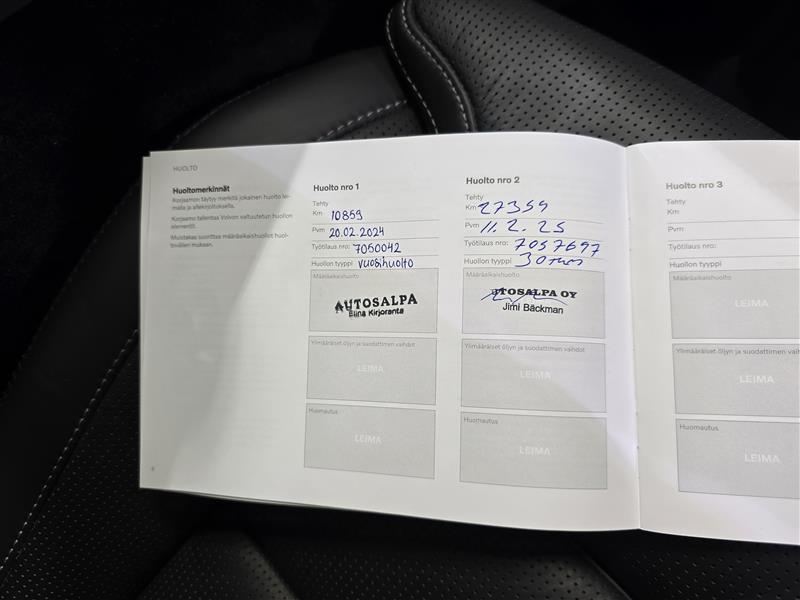 HUOLTO
Huoltomerkinnät
Korjaamon täytyy merkitä jokainen huolto lei-
malla ja allekirjoituksella.
Korjaamo tallentaa Volvon valtuutetun huollon
elementit.
Muistakaa suorittaa määräaikaishuollot huol-
tovälien mukaan.
Huolto nro 1
Tehty
Km 10859
Pvm 20.02.2024
Työtilaus nro: 7050042
Huollon tyyppi vuosihuolto
Määräaikaishuolto
AUTOSALPA
Elina Kirjoranta
Ylimääräiset öljyn ja suodattimen vaihdot
LEIMA
Huomautus
LEIMA
Huolto nro 2
Tehty
Km 27359
Pvm 11.2.25
Työtilaus nro: 7057697
Huollon tyyppi
Määräaikaishuolto
AUTOSALPA OY
Jimi Bäckman
Ylimääräiset öljyn ja suodattimen vaihdot
LEIMA
Huomautus
LEIMA
Huolto nro 3
Tehty
Km
Pvm
Työtilaus nro:
Huollon tyyppi
Määräaikaishuolto
LEIMA
Ylimääräiset öljyn ja suodattimen vaihdot
LEIMA
Huomautus
LEIMA